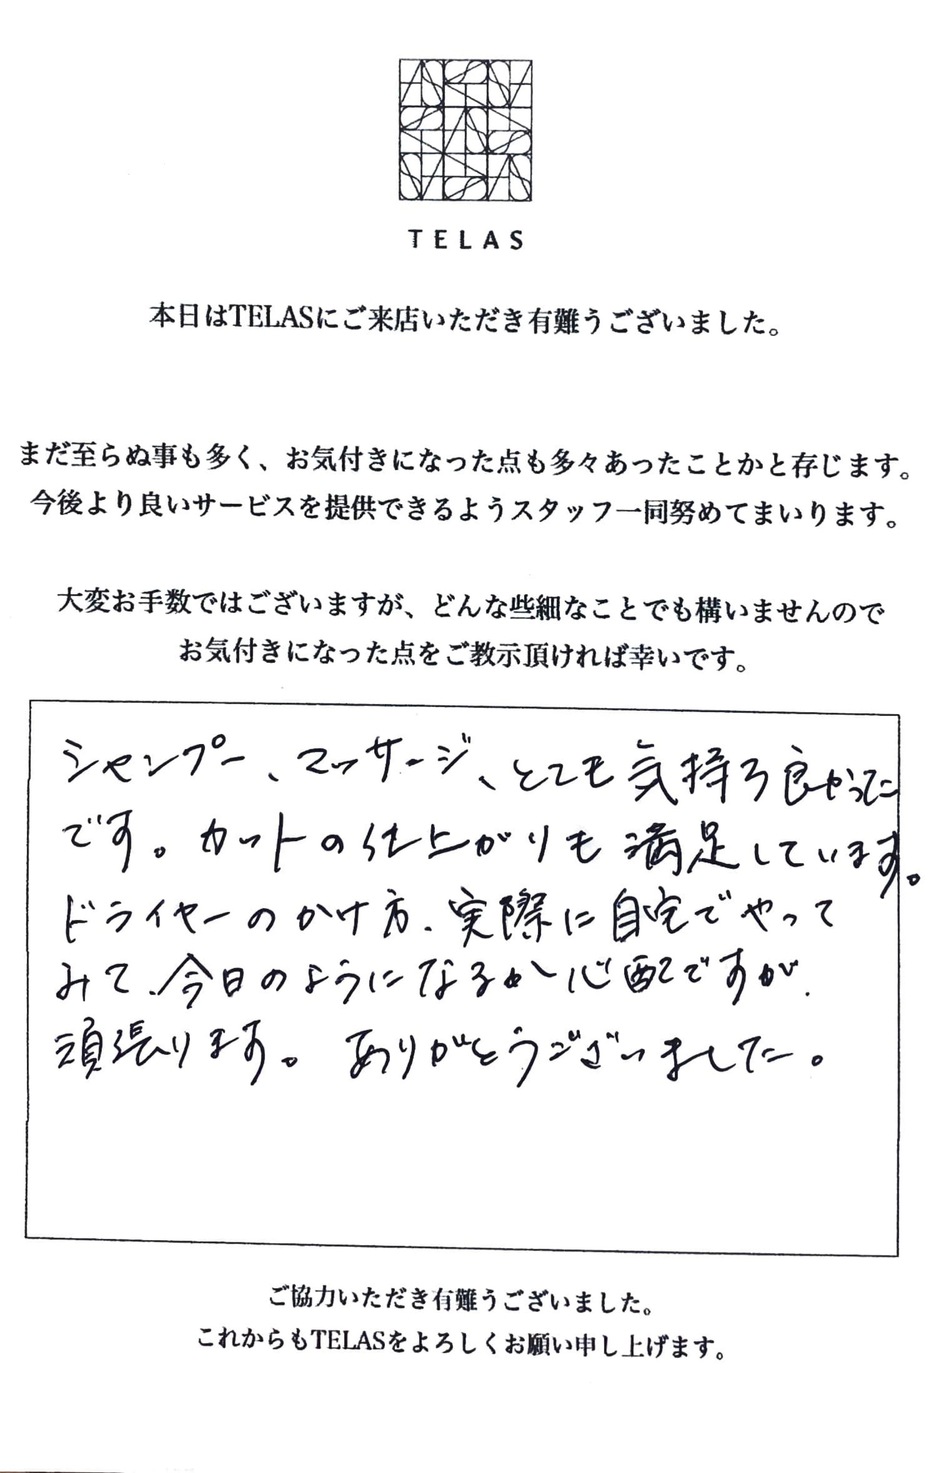 TELAS
本日はTELASにご来店いただき有難うございました。
まだ至らぬ事も多く、お気付きになった点も多々あったことかと存じます。
今後より良いサービスを提供できるようスタッフ一同努めてまいります。
大変お手数ではございますが、どんな些細なことでも構いませんので
お気付きになった点をご教示頂ければ幸いです。
シャンプー、マッサージ、とても気持ち良かった
です。カットの仕上がりも満足しています。
ドライヤーのかけ方、実際に自宅でやって
みて、今日のようになるか心配ですが、
頑張ります。ありがとうございました。
ご協力いただき有難うございました。
これからもTELASをよろしくお願い申し上げます。